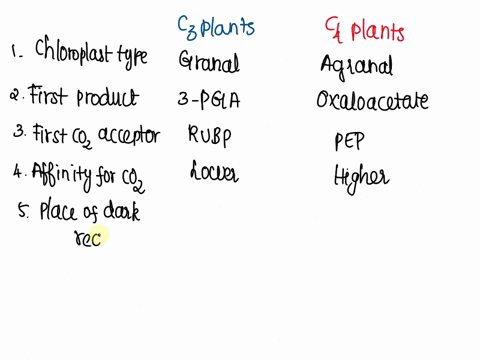 C3 Plants C4 Plants
1. Chloroplast type Granal Agranal
2. First product 3-PGA Oxaloacetate
3. First CO2 acceptor RUBP PEP
4. Affinity for CO2 Lower Higher
5. Place of dark
rec